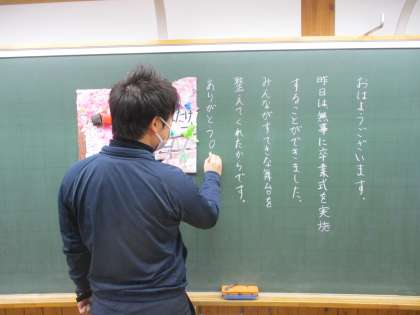 おはようございます。
昨日は無事に卒業式を実施
することができました。
みんながすてきな舞台を
整えてくれたからです。
ありがとう
だけ